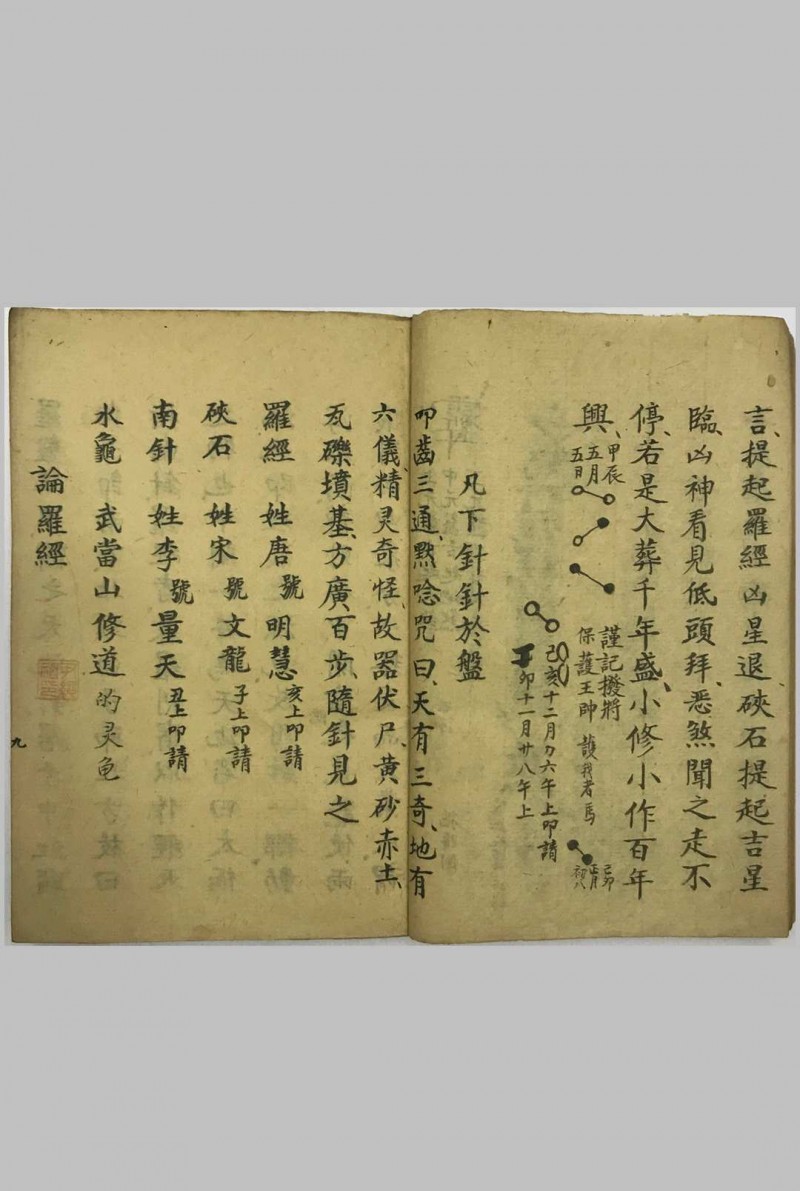 言、提起羅經凶星退硤石提起吉星
臨、凶神看見低頭拜、惡煞聞之走不
停、若是大葬千年盛、小修小作百年
興、甲辰五月五日
謹記撥將
保護王帥 護我者焉
己卯正月初八
己亥十二月力六午上叩請
丁卯十一月廿八午上
凡下針針於盤
叩齒三通、黙唸咒曰、天有三奇、地有
六儀、精灵奇怪、故器伏尸、黄砂赤土、
瓦礫墳基、方廣百步、隨針見之
羅經 姓唐 號明慧 亥上叩請
硤石 姓宋 號文龍 子上叩請
南針 姓李 號量天 丑上叩請
水龜 武當山修道的灵龟
論羅經
九